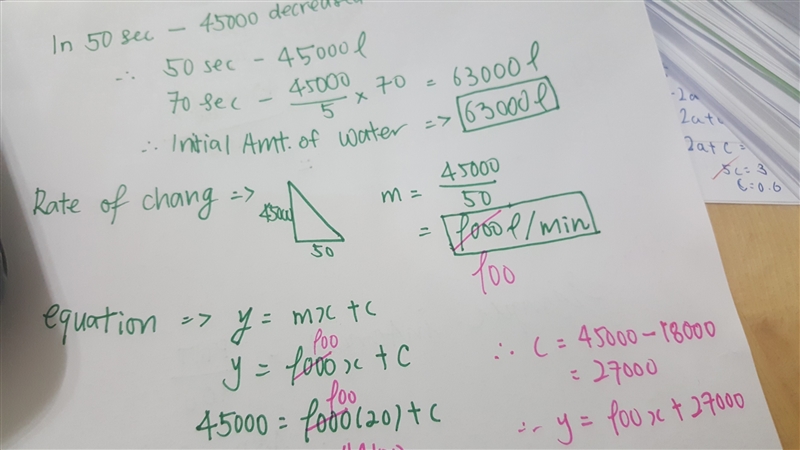 In 50 sec - 45000 decreased
∴ 50 sec - 45000 l
70 sec - 45000/5 × 70 = 63000 l
∴ Initial Amt. of water => 63000 l
Rate of chang =>
45000
50
m = 45000/50
= 9000 l/min
900
equation => y = mx + c
900
y = 9000x + C
900
45000 = 9000(20) + c
∴ C = 45000 - 18000
= 27000
∴ y = 900x + 27000
-2a
2a+c =
5c = 3
c = 0.6